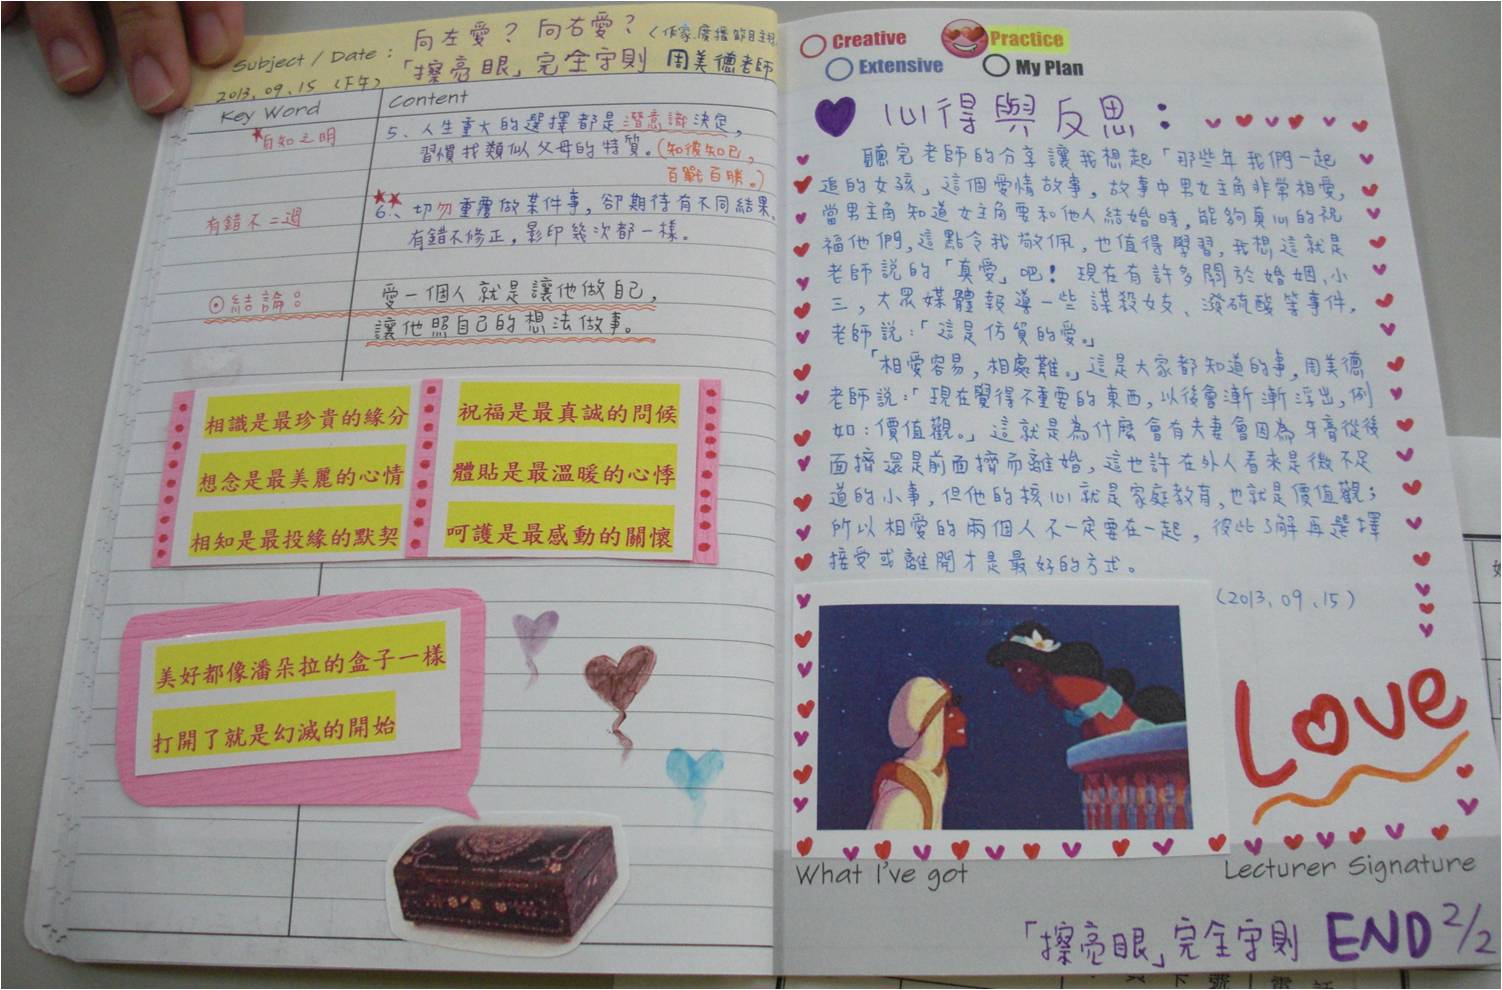 Subject / Date :
向左愛？ 向右愛？ (作家、廣播節目主持
「擦亮眼」完全守則 周美德老師
2013.09.15 (下午)
Key Word
Content
自知之明
5、人生重大的選擇都是潛意識決定，
習慣找類似父母的特質。(知彼知己，
百戰百勝。)
6、切勿重覆做某件事，卻期待有不同結果。
有錯不二過
有錯不修正，影印幾次都一樣。
結論：
愛一個人就是讓他做自己，
讓他照自己的想法做事。
相識是最珍貴的緣分
想念是最美麗的心情
相知是最投緣的默契
祝福是最真誠的問候
體貼是最溫暖的心悸
呵護是最感動的關懷
美好都像潘朵拉的盒子一樣
打開了就是幻滅的開始
Creative
Practice
Extensive
My Plan
心得與反思：
聽完老師的分享讓我想起「那些年我們一起
追的女孩」這個愛情故事，故事中男女主角非常相愛，
當男主角知道女主角要和他人結婚時，能夠真心的祝
福他們，這點令我敬佩，也值得學習，我想這就是
老師說的「真愛」吧！現在有許多關於婚姻、小
三，大眾媒體報導一些謀殺女友、潑硫酸等事件，
老師說：「這是仿質的愛。」
「相愛容易，相處難。」這是大家都知道的事，周美德
老師說：「現在覺得不重要的東西，以後會漸漸浮出，例
如：價值觀。」這就是為什麼會有夫妻會因為牙膏從後
面擠還是前面擠而離婚，這也許在外人看來是微不足
道的小事，但他的核心就是家庭教育，也就是價值觀；
所以相愛的兩個人不一定要在一起，彼此了解再選擇
接受或離開才是最好的方式。
(2013.09.15)
Love
What I've got
Lecturer Signature
「擦亮眼」完全守則 END 2/2